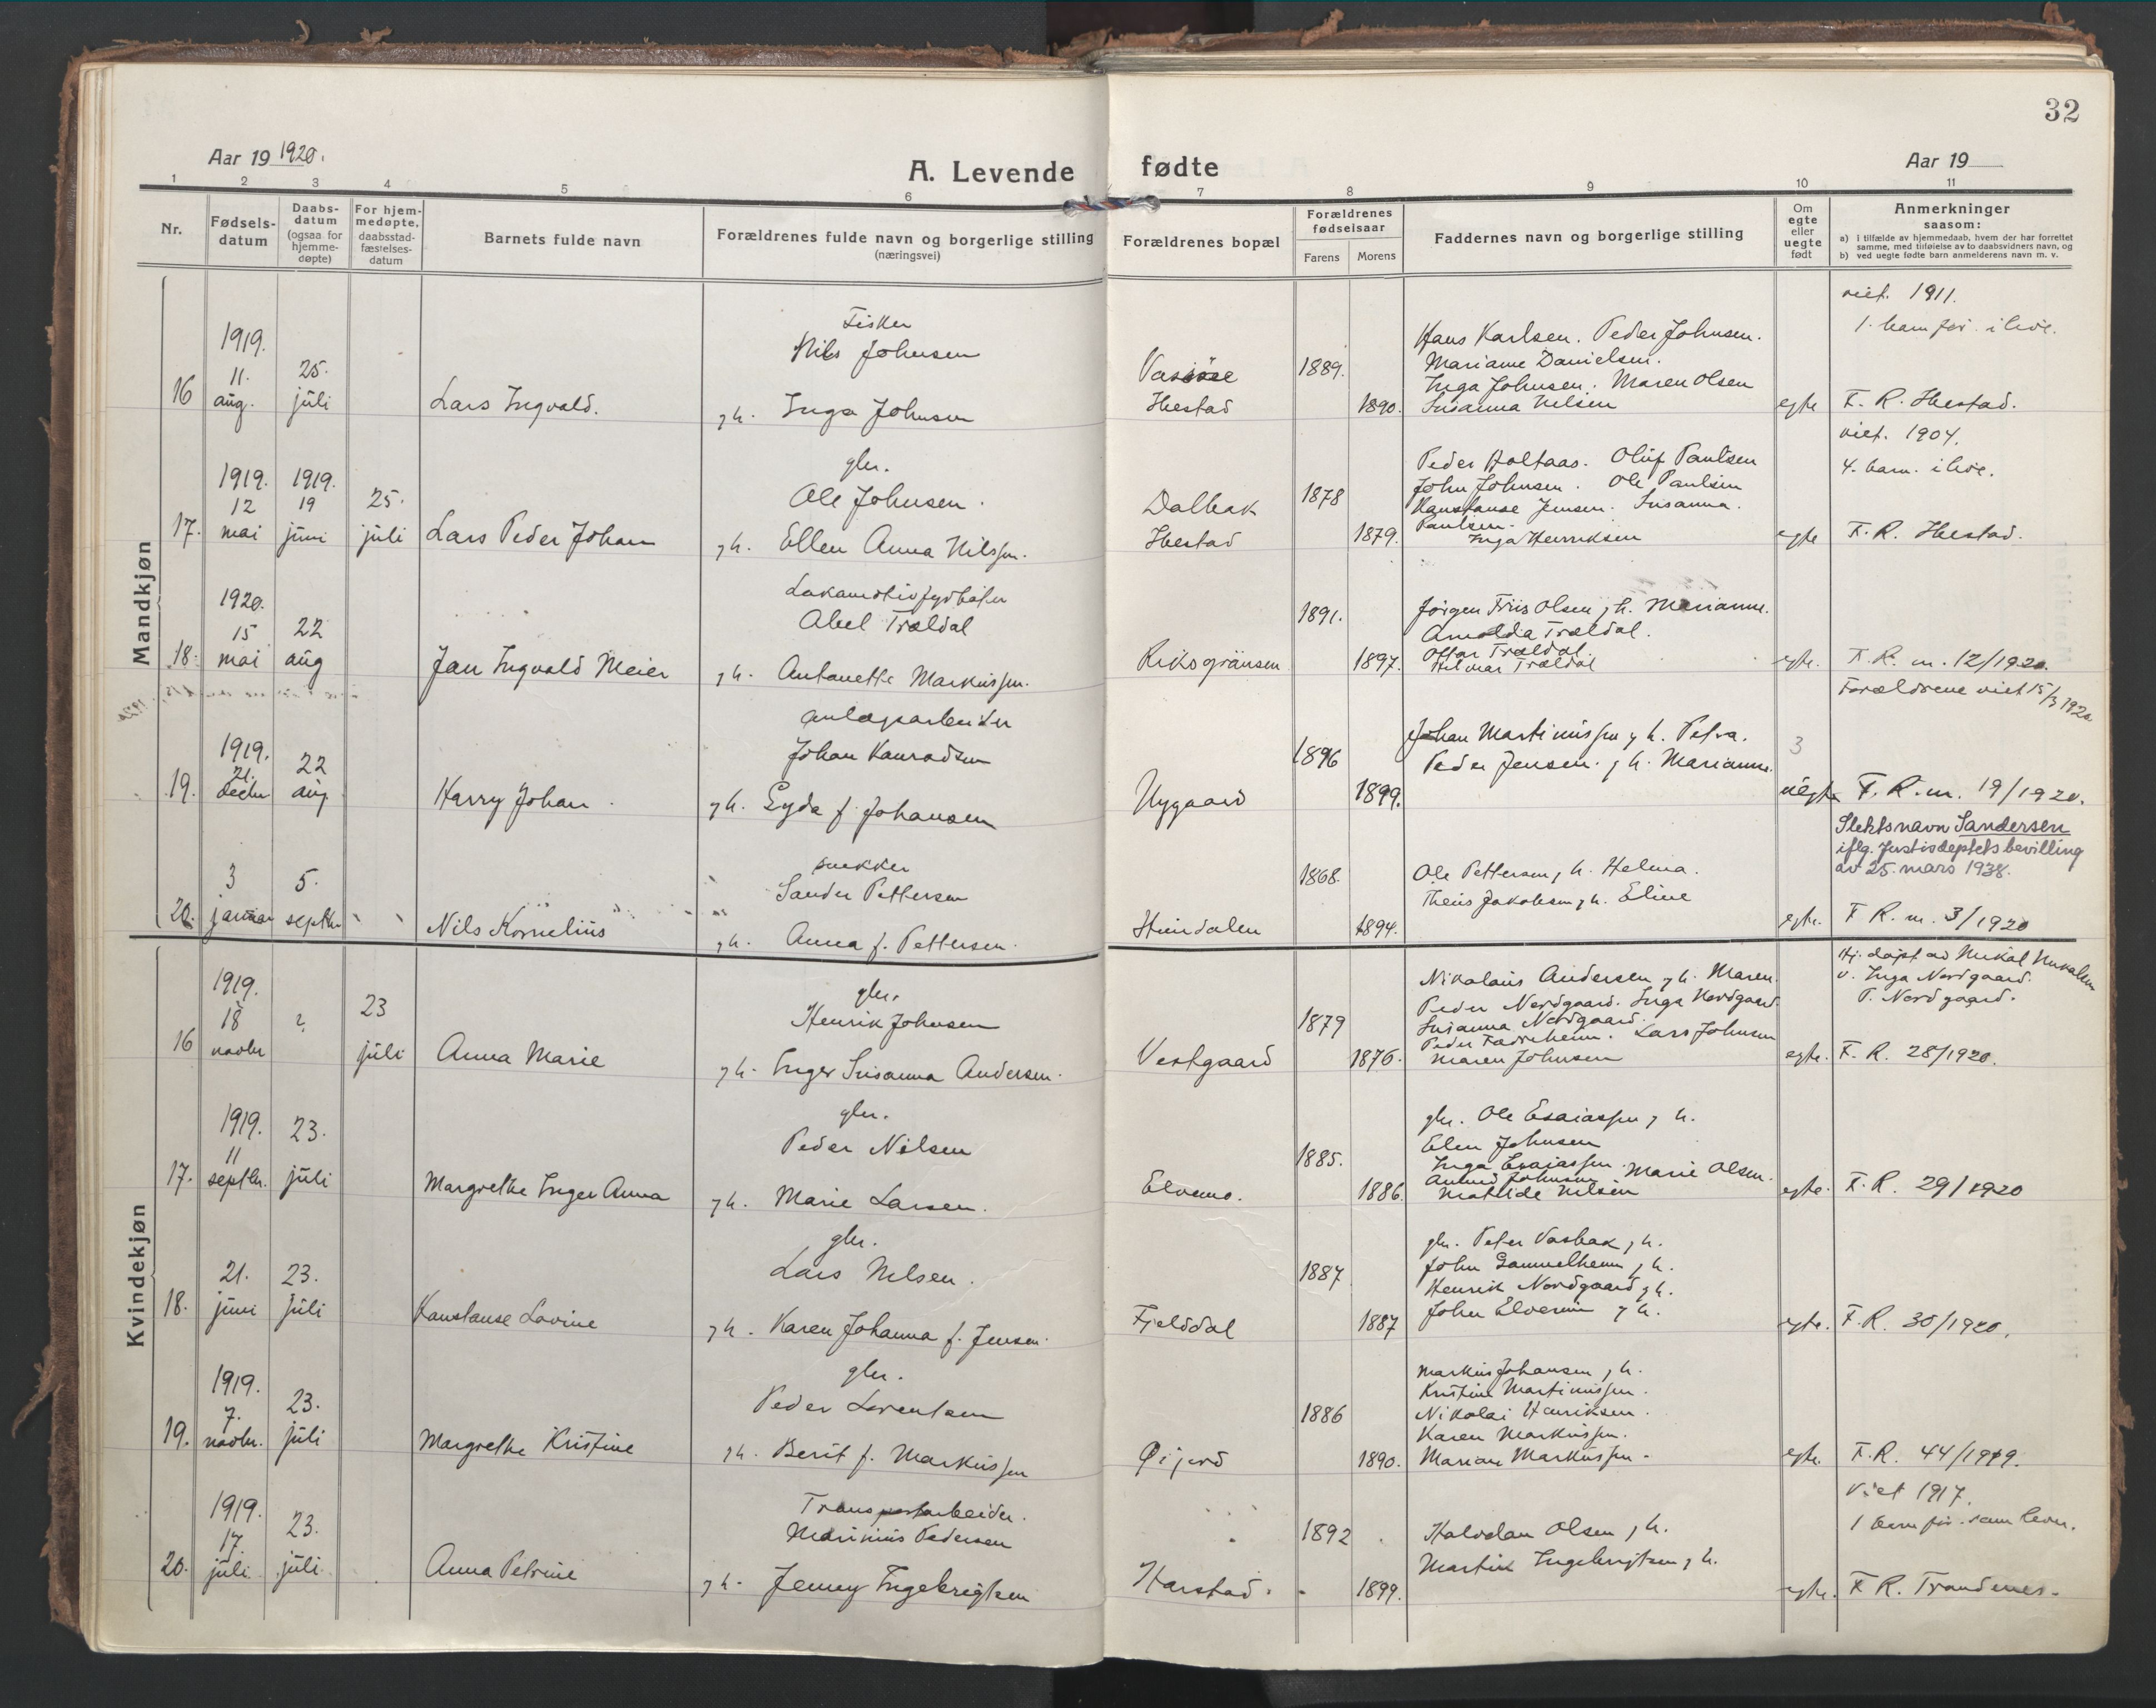 32
Aar 19 1920.
A. Levende fødte
Aar 19
1 2 3 4 5 6 7 8 9 10 11
Nr.
Fødsels-
datum
Daabs-
datum
(ogsaa for
hjemme-
døpte)
For hjem-
medøpte.
daabsstad-
fæstelses-
datum
Barnets fulde navn
Forældrenes fulde navn og borgerlige stilling
(næringsvei)
Forældrenes bopæl
Forældrenes
fødselsaar
Farens Morens
Faddernes navn og borgerlige stilling
Om
egte
eller
uegte
født
Anmerkninger
saasom:
a) i tilfælde av hjemmedaab, hvem der har forrettet
samme, med tilføielse av to daabsvidners navn, og
b) ved uegte fødte barn anmelderens navn m. v.
Mandkjøn
16
1919.
11.
aug.
25.
juli
Lars Ingvald.
Fisker
Nils Johnsen
g h. Inga Johnsen
Ibestad
1889.
1890.
Hans Karlsen. Peder Johnsen.
Marianne Danielsen.
Inga Johnsen. Maren Olsen
Susanna Nilsen
egte
viet. 1911.
1. barn før. i live.
F. R. Ibestad.
17.
1919.
12
mai
1919.
19
juni
25.
juli
Lars Peder Johan
gbr.
Ole Johnsen.
g h. Ellen Anna Nilssen.
Dalbak
Ibestad
1878
1879.
Peder Holtaas. Oluf Paulsen
John Johnsen. Ole Paulsen
Konstanse Jensen. Susanna
Paulsen.
Inga Henriksen
egte
viet. 1904.
4. barn. i live.
F. R. Ibestad.
18.
1920.
15
mai
22
aug
Jan Ingvald Meier
Lokomotivfyrbøter
Abel Trældal
g h. Antonette Markussen.
Riksgränsen
1891.
1897.
Jørgen Friis Olsen g h. Marianne.
Arnolda Trældal.
Ottar Trældal.
Hilmar Trældal
egte.
F. R. m. 12/1920.
19.
1919.
21.
decbr
22
aug
Harry Johan
anlægsarbeider
Johan Konradsen
g h. Gyda f. Johansen
Nygaard
1896
1899.
Johan Martinussen g h. Petra.
Peder Jensen. g h. Marianne.
3
uegte
Forældrene viet 15/3 1920.
F. R. m. 19/1920.
20.
3
januar
5.
septbr
Nils Kornelius
snekker
Sander Pettersen
g h. Anna f. Pettersen.
Hundalen
1868.
1894.
Ole Pettersen g h. Helma.
Theus Jakobsen g h. Eline
egte.
Slektsnavn Sandersen
iflg. Justisdeptets bevilling
av 25. mars 1938.
F R. m. 3/1920
Kvindekjøn
16
1919.
18
novbr
?
23
juli
Anna Marie
gbr.
Henrik Johnsen
g h. Inger Susanna Andersen.
Vestgaard
1879
1876.
Nikolaus Andersen g h. Maren.
Peder Nordgaard. Inga Nordgaard
Susanna Nordgaard.
Lars Johnsen
Maren Johnsen
egte.
Hj. døpt av Mikal Mikalsen
v. Inga Nordgaard.
P. Nordgaard.
F. R. 28/1920.
17.
1919.
11
septbr.
23.
juli
Margrethe Inger Anna
gbr.
Peder Nilsen
g h. Marie Larsen.
Elvemo.
1885.
1886.
gbr. Ole Esaiassen g h.
Elen Johnsen
Inga Esaiassen. Marie Olsen.
Mathilde Nilsen
egte.
F. R. 29/1920
18.
21.
juni
23.
juli
Konstanse Lovine
gbr.
Lars Nilsen.
g h. Karen Johanna f. Jensen.
Fjelddal
1887
1887
gbr. Peter Vasbak g h.
John Gammelheim g h.
Henrik Nordgaard g h.
John Elvenm g h.
egte.
F. R. 30/1920.
19.
1919.
7.
novbr.
23.
juli
Margrethe Kristine
gbr.
Peder Lorentsen
g h. Berit f. Markussen
Øijord
1886
1890.
Markus Johansen g h.
Kristine Martinussen.
Nikolai Henriksen.
Karen Markussen.
Marian Markussen.
egte.
F. R. 44/1919.
20.
1919.
17.
juli
23.
juli
Anna Petrine
Transportarbeider.
Marinius Pedersen
g h. Jenny Ingebrigtsen
Harstad.
1892
1899.
Halvdan Olsen g h.
Martin Ingebrigtsen g h.
egte.
Viet 1917.
1 barn før. som lever.
F R. Trondenes.